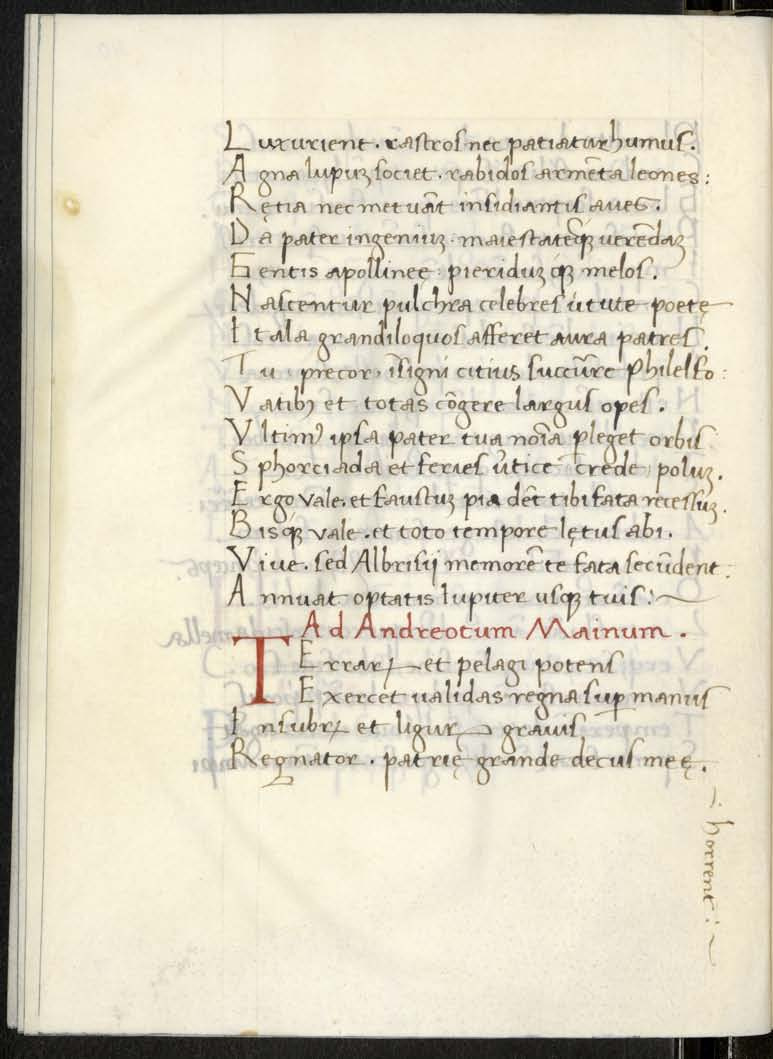 Luxurient. rastros nec patiatur humus.
Agna lupuꝫ societ. rabidos armēta leones:
Rętia nec metuāt insidiantis aues.
Da pater ingeniuꝫ. maiestatēqꝫ verēdaꝫ
Gentis apollineę: pieriduꝫ qꝫ melos.
Nascentur pulchra celebres ūtute poetę
Itala grandiloquos afferet aura patres.
Tu precor, īsigni citius succūre Philelfo:
Vatibꝫ et totas cōgere largus opes.
Vltimꝰ ipsa pater tua noīa pleget orbis
Sphorciada et feries ūtice crede poluꝫ.
Ergo vale. et faustuꝫ pia dēt tibi fata recessuꝫ.
Bisqꝫ vale. et toto tempore lętus abi.
Viue. sed Albrisij memorē te fata secūdent:
Annuat optatis Iupiter usqꝫ tuis:~
Ad Andreotum Mainum.
TErrarꝝ et pelagi potens
Exercet ualidas regna suꝑ manus
Insubrꝝ et ligurꝝ grauis
Regnator. patrię grande decus meę.
horrent:~